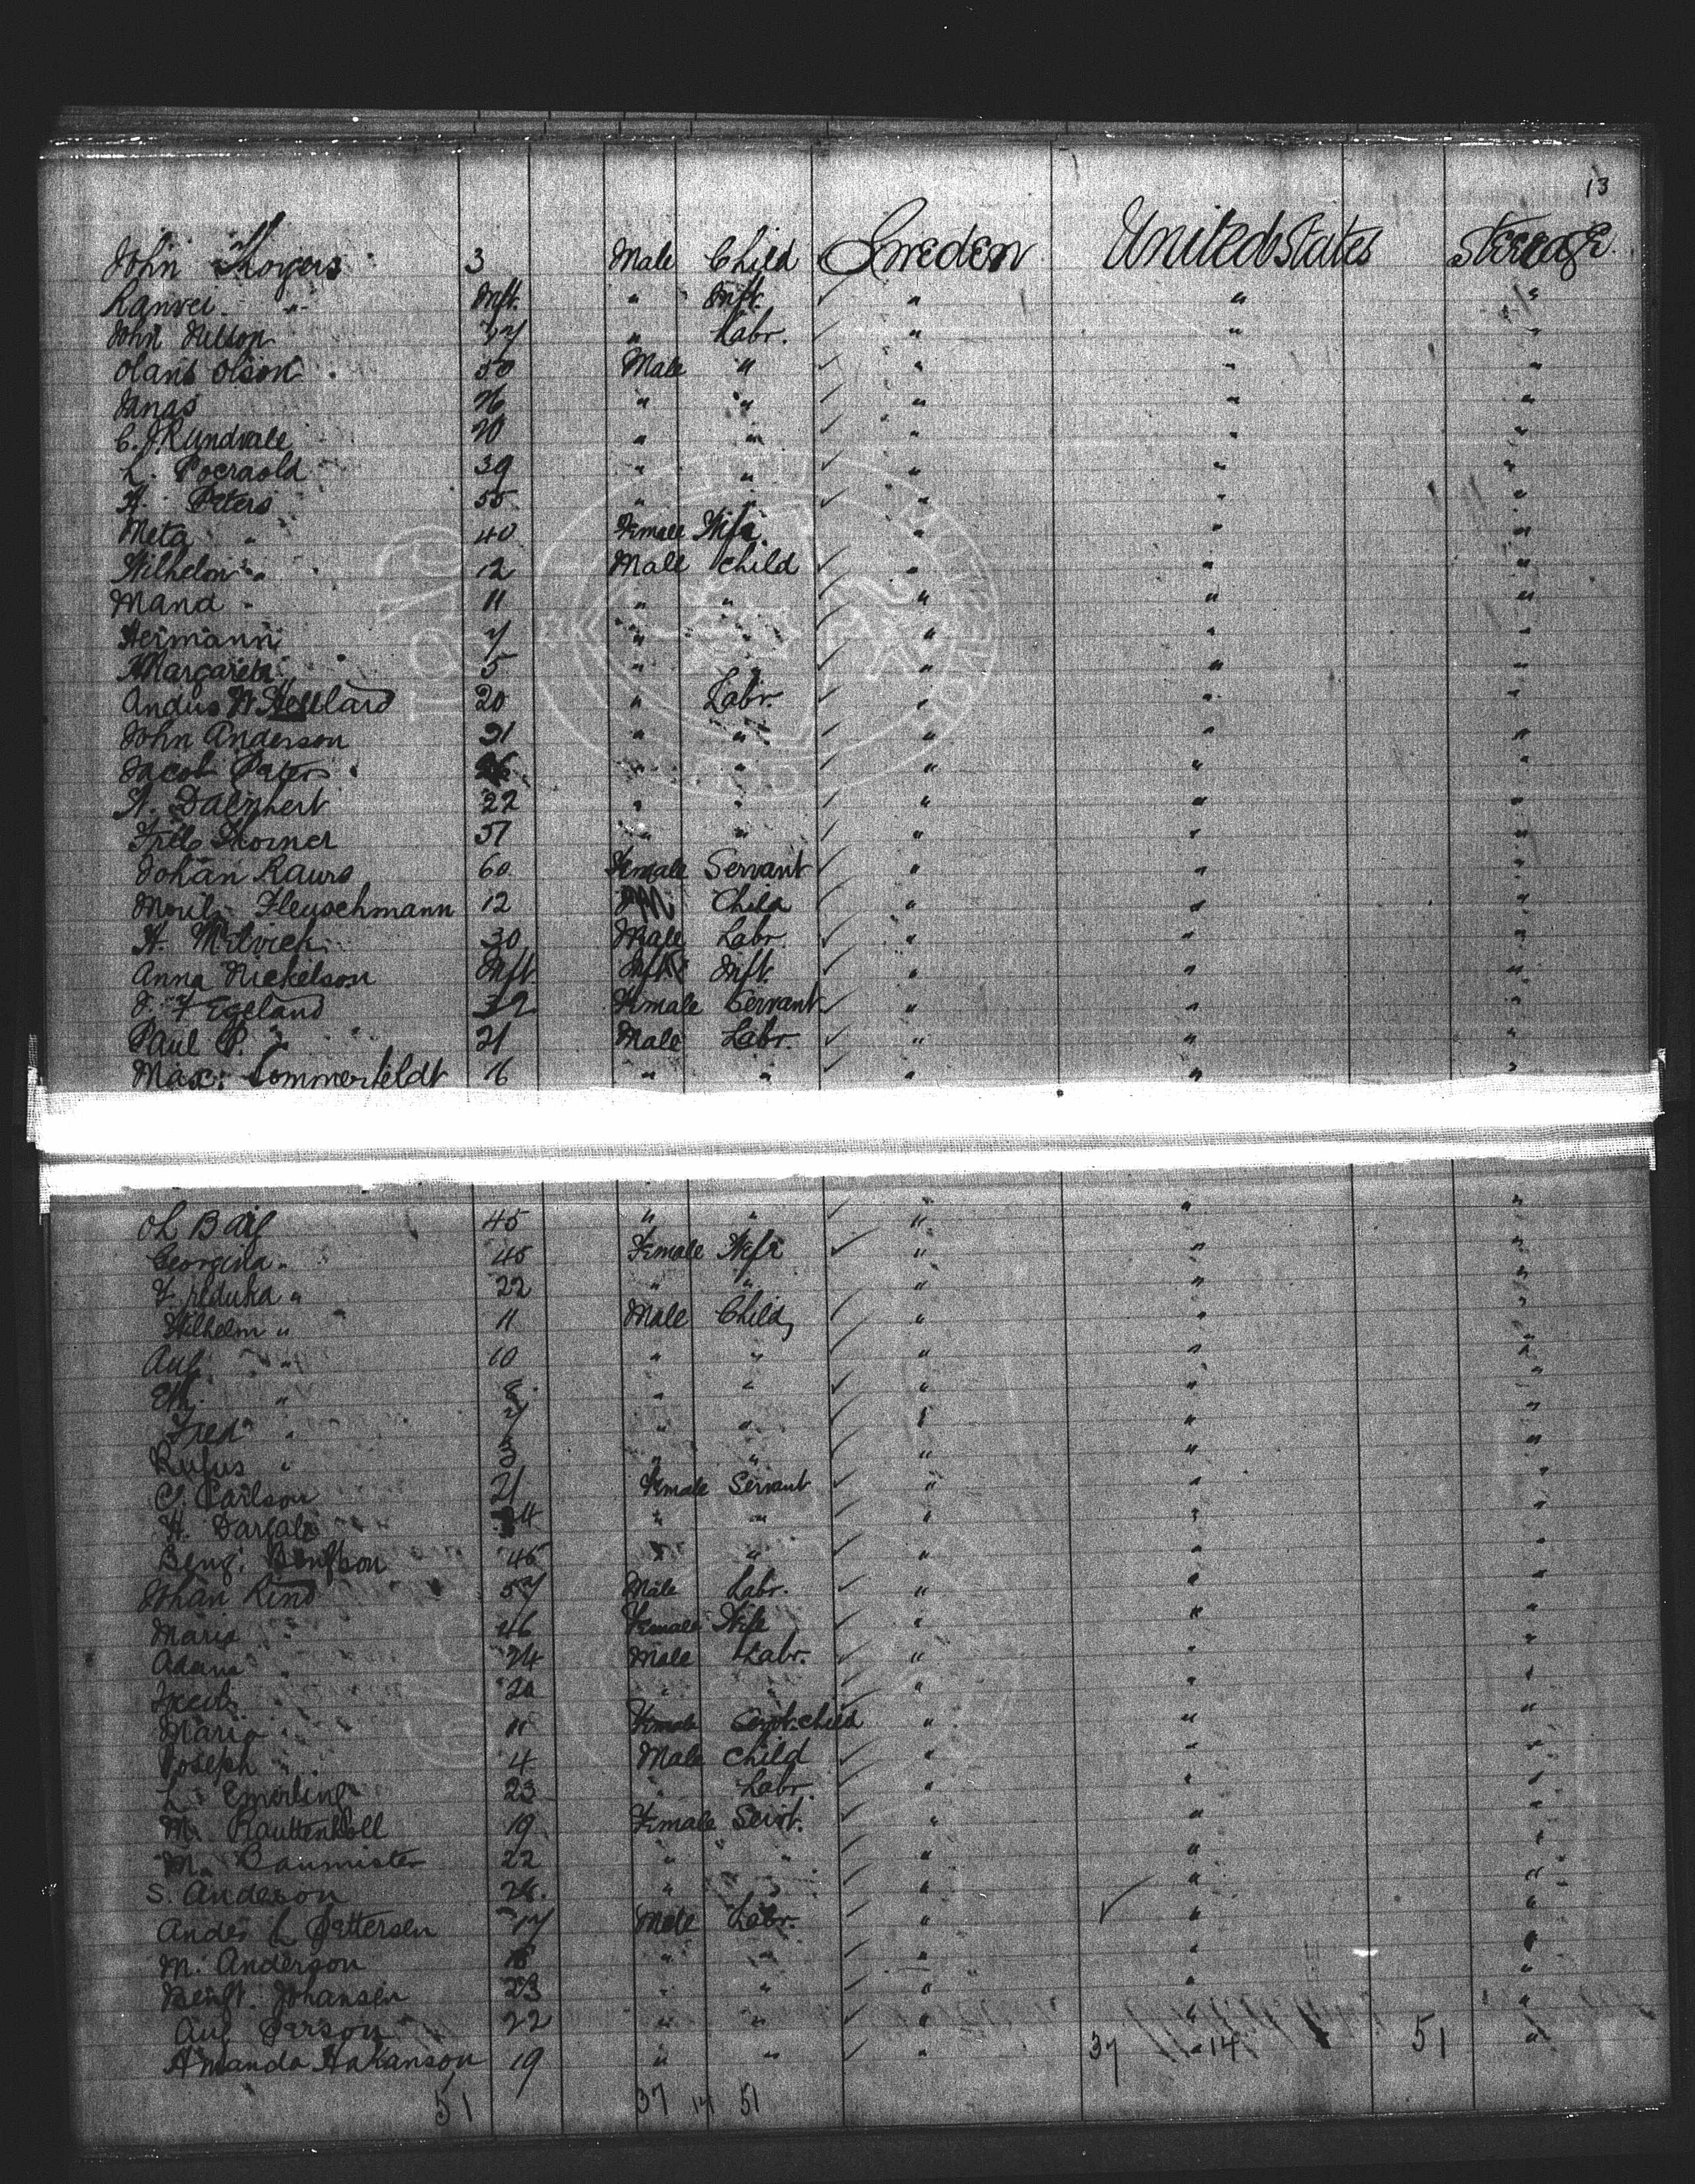 13
John Thoyers 3 Male Child Sweden United States Steerage
Ranvei " Inft. " Inft. " " "
John Nilson 27 " Labr. " " "
Olans Olson 50 Male " " " "
Jonas 26 " " " " "
C. J Rundvale 20 " " " " "
L. 39 " " " " "
H. Peters 55 " " " " "
Meta " 40 Female Wife " " "
Wilhelm " 12 Male Child " " "
Mand " 11 " " " " "
Hermann 7 " " " " "
Margareth 5 " " " " "
Andus 20 " Labr. " " "
John Anderson 21 " " " " "
Jacob Peters " " " " "
A. Dalnhert 22 " " " " "
Thorner " " " " "
Johan Raurs 60 Female Servant " " "
Fleuschmann 12 M Child " " "
A. 30 Male Labr. " " "
Anna Nickelson Inft. Inft. Inft. " " "
J. F Egeland 32 Female Servant " " "
Paul P. " 21 Male Labr. " " "
Max. Sommerfeldt 16 " " " " "
45 " " " " "
Georgina " 45 Female Wife " " "
22 " " " " "
Wilhelm " 11 Male Child " " "
Aug " 10 " " " " "
" 8 " " " " "
Fred " 7 " " " " "
Rufus " 3 " " " " "
C. Carlson 21 Female Servant " " "
H. 24 " " " " "
Beng. Bengtson 45 " " " " "
Johan Lind 57 Male Labr. " " "
Maria " 46 Female Wife " " "
Adam " 24 Male Labr. " " "
20 " " " " "
Maria " 11 Female Servt. child " " "
Joseph " 4 Male Child " " "
L. Emerling 23 " Labr. " " "
M. Rauttenkoll 19 Female Servt. " " "
M. Baumister 22 " " " " "
S. Anderson 28. " " " " "
Ander L Pettersen 17 Male Labr. " " "
M. Anderson 18 " " " " "
Bengt. Johansen 23 " " " " "
Aug Person 22 " " " " "
Amanda Hakanson 19 " " " 37 14 51 "
51 37 14 51